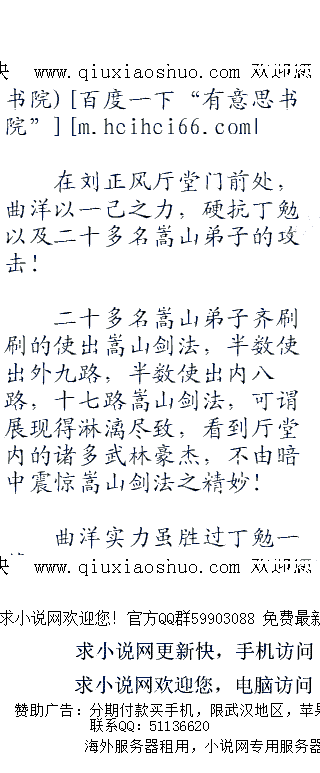 快 www.qiuxiaoshuo.com 欢迎您
书院) [百度一下“有意思书
院”] [m.hcihci66.com|
在刘正风厅堂门前处，
曲洋以一己之力，硬抗丁勉
以及二十多名嵩山弟子的攻
击！
二十多名嵩山弟子齐刷
刷的使出嵩山剑法，半数使
出外九路，半数使出内八
路，十七路嵩山剑法，可谓
展现得淋漓尽致，看到厅堂
内的诸多武林豪杰，不由暗
中震惊嵩山剑法之精妙！
曲洋实力虽胜过丁勉一
快 www.qiuxiaoshuo.com 欢迎您
求小说网欢迎您! 官方QQ群59903088 免费最新
求小说网更新快，手机访问
求小说网欢迎您，电脑访问
赞助广告：分期付款买手机，限武汉地区，苹果
联系QQ：51136620
海外服务器租用，小说网专用服务器